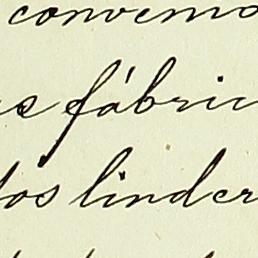 convemo
s fábric
dos linder